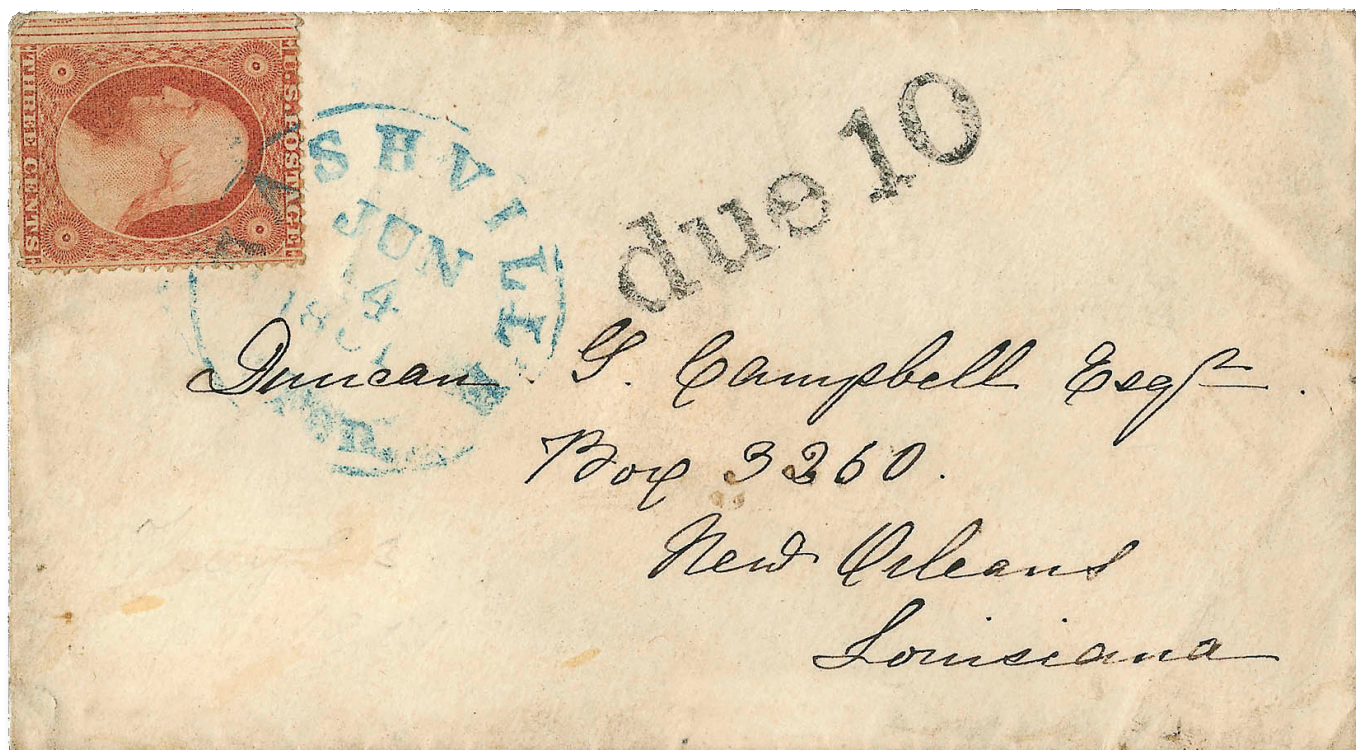 U.S. POSTAGE
THREE CENTS
NASHVILLE
Ten.
JUN
14
1861
due 10
Duncan G. Campbell Esqr.
Box 3260.
New Orleans
Louisiana